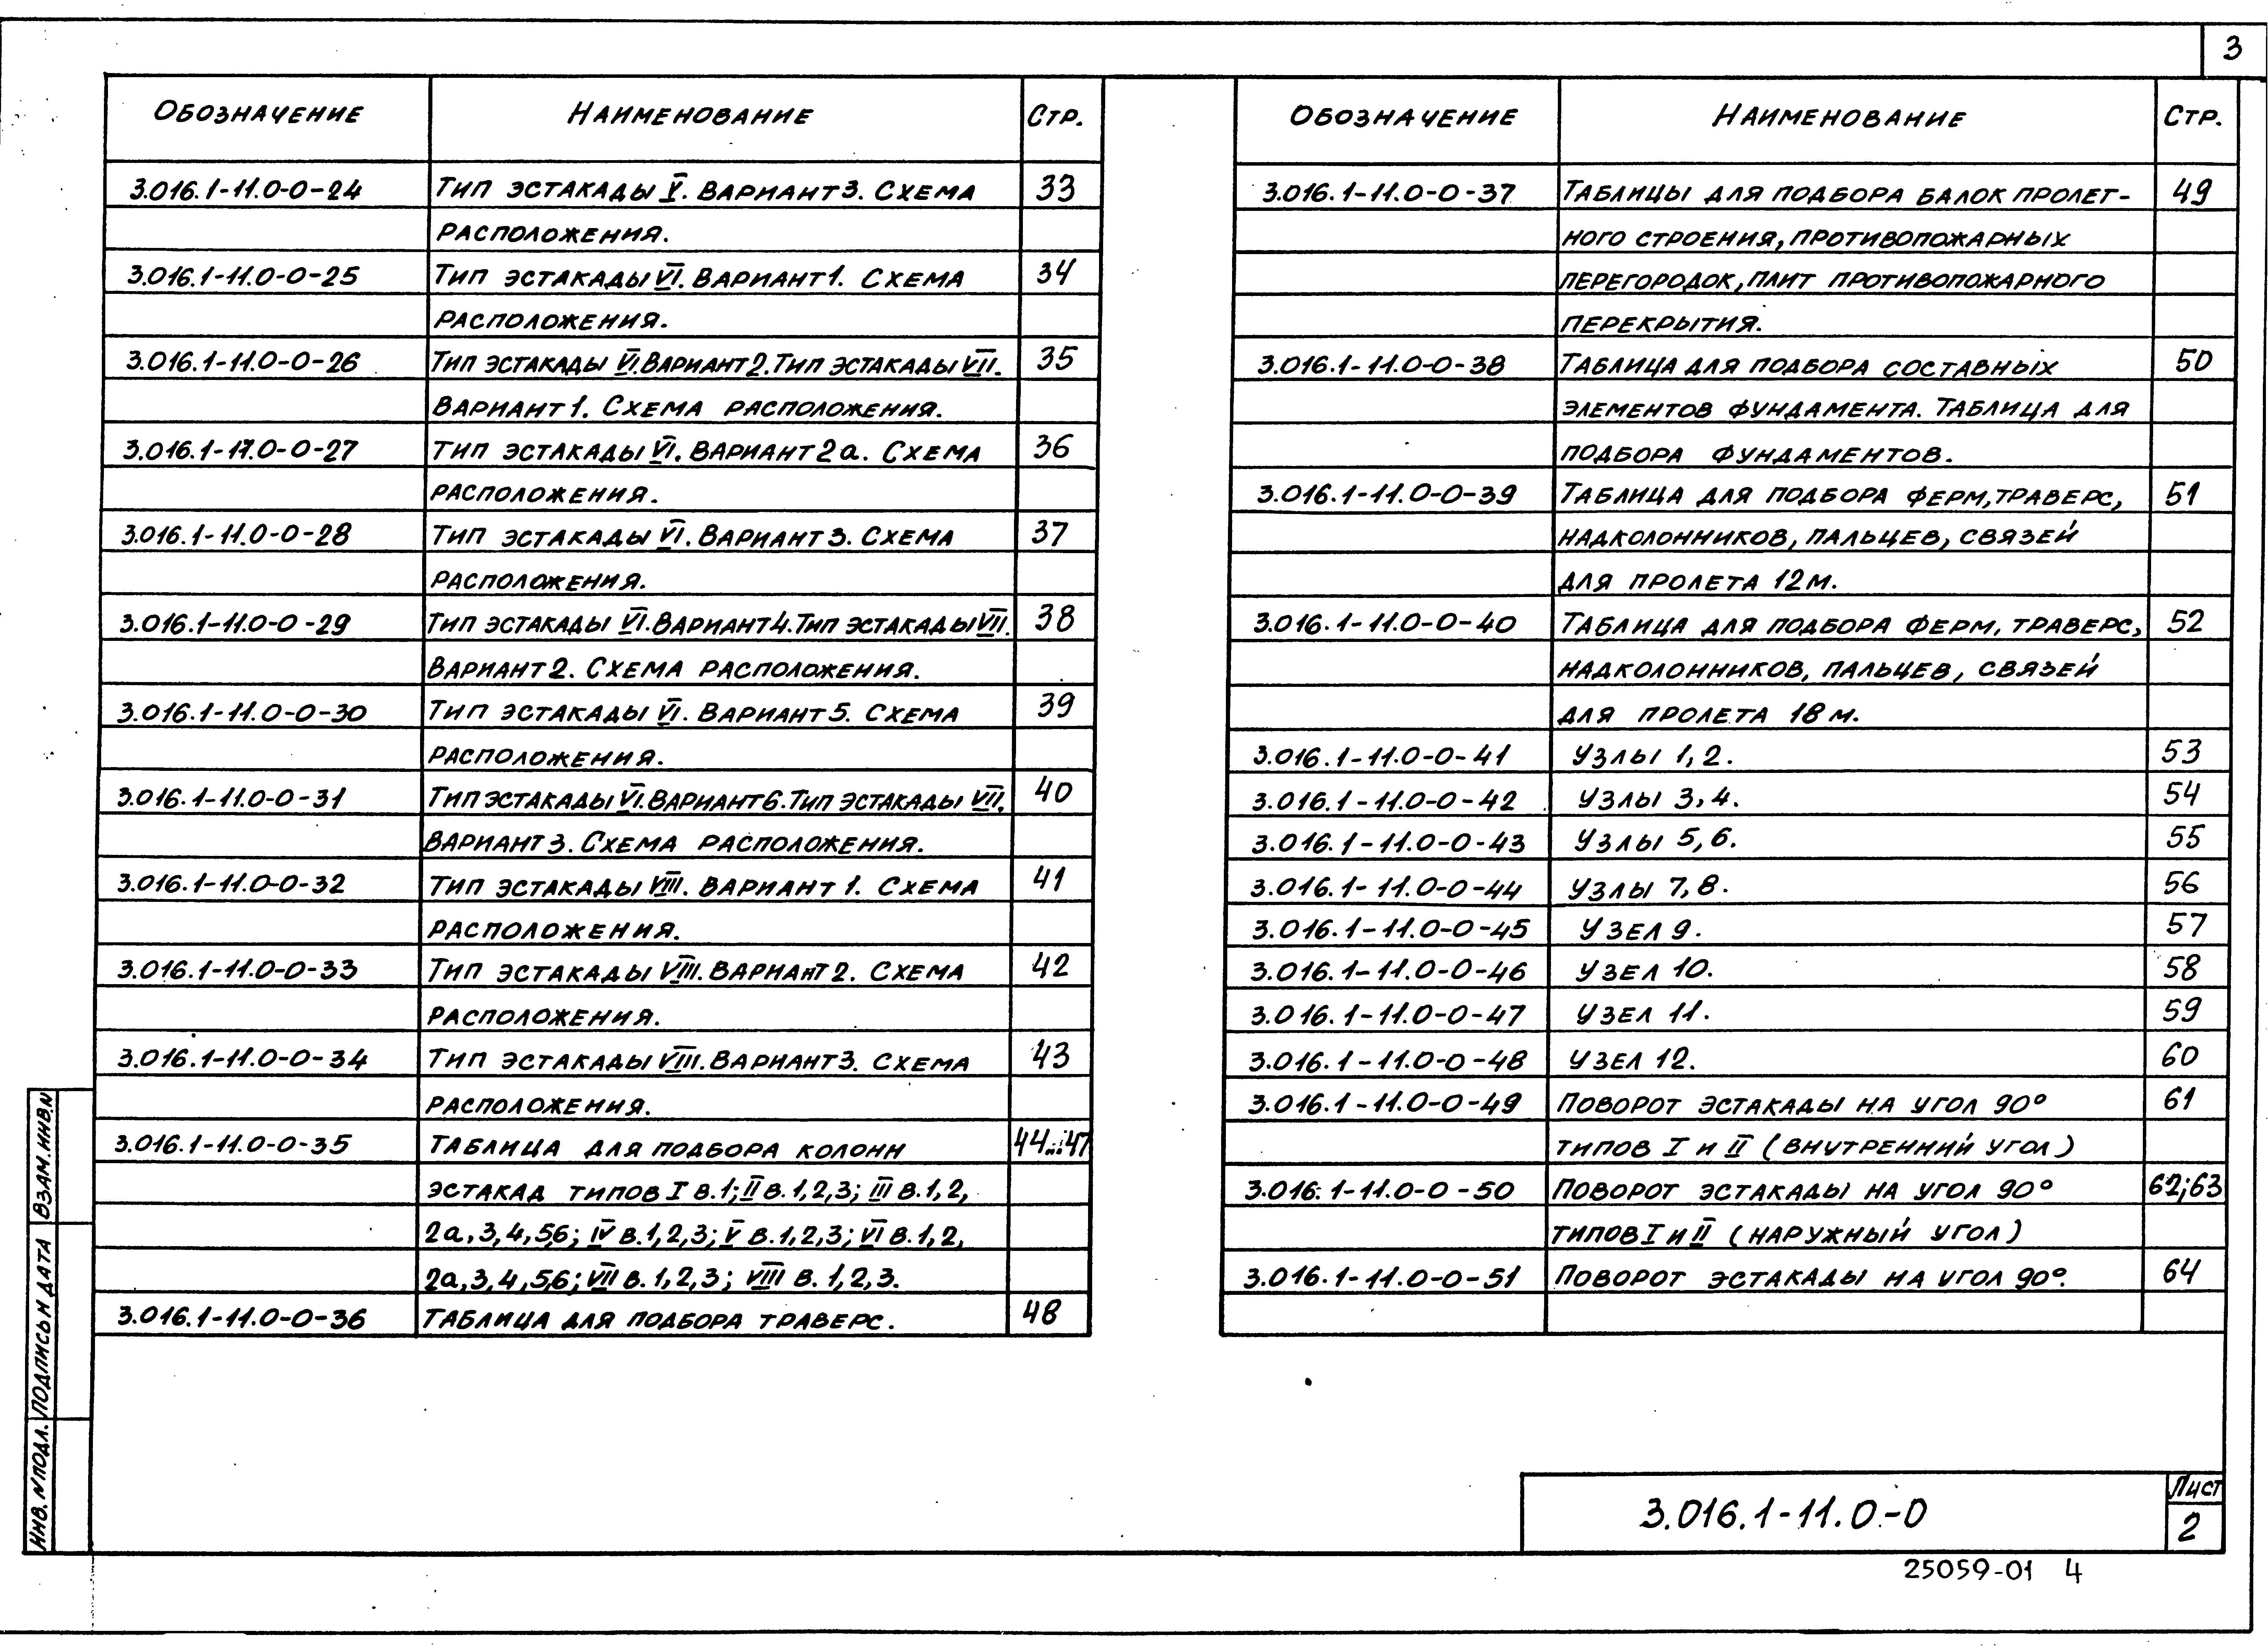 3
Обозначение Наименование Стр.
3.016.1-11.0-0-24 Тип эстакады V. Вариант 3. Схема 33
расположения.
3.016.1-11.0-0-25 Тип эстакады VI. Вариант 1. Схема 34
расположения.
3.016.1-11.0-0-26 Тип эстакады VI. Вариант 2. Тип эстакады VII. 35
Вариант 1. Схема расположения.
3.016.1-11.0-0-27 Тип эстакады VI. Вариант 2а. Схема 36
расположения.
3.016.1-11.0-0-28 Тип эстакады VI. Вариант 3. Схема 37
расположения.
3.016.1-11.0-0-29 Тип эстакады VI. Вариант 4. Тип эстакады VII. 38
Вариант 2. Схема расположения.
3.016.1-11.0-0-30 Тип эстакады VI. Вариант 5. Схема 39
расположения.
3.016.1-11.0-0-31 Тип эстакады VI. Вариант 6. Тип эстакады VII. 40
Вариант 3. Схема расположения.
3.016.1-11.0-0-32 Тип эстакады VIII. Вариант 1. Схема 41
расположения.
3.016.1-11.0-0-33 Тип эстакады VIII. Вариант 2. Схема 42
расположения.
3.016.1-11.0-0-34 Тип эстакады VIII. Вариант 3. Схема 43
расположения.
3.016.1-11.0-0-35 Таблица для подбора колонн 44...47
эстакад типов I в.1; II в.1,2,3; III в.1,2,
2а,3,4,5,6; IV в.1,2,3; V в.1,2,3; VI в.1,2,
2а,3,4,5,6; VII в.1,2,3; VIII в. 1,2,3.
3.016.1-11.0-0-36 Таблица для подбора траверс. 48
Обозначение Наименование Стр.
3.016.1-11.0-0-37 Таблицы для подбора балок пролет- 49
ного строения, противопожарных
перегородок, плит противопожарного
перекрытия.
3.016.1-11.0-0-38 Таблица для подбора составных 50
элементов фундамента. Таблица для
подбора фундаментов.
3.016.1-11.0-0-39 Таблица для подбора ферм, траверс, 51
надколонников, пальцев, связей
для пролета 12м.
3.016.1-11.0-0-40 Таблица для подбора ферм, траверс, 52
надколонников, пальцев, связей
для пролета 18 м.
3.016.1-11.0-0-41 Узлы 1,2. 53
3.016.1-11.0-0-42 Узлы 3,4. 54
3.016.1-11.0-0-43 Узлы 5,6. 55
3.016.1-11.0-0-44 Узлы 7,8. 56
3.016.1-11.0-0-45 Узел 9. 57
3.016.1-11.0-0-46 Узел 10. 58
3.016.1-11.0-0-47 Узел 11. 59
3.016.1-11.0-0-48 Узел 12. 60
3.016.1-11.0-0-49 Поворот эстакады на угол 90° 61
типов I и II (внутренний угол)
3.016.1-11.0-0-50 Поворот эстакады на угол 90° 62;63
типов I и II (наружный угол)
3.016.1-11.0-0-51 Поворот эстакады на угол 90°. 64
Инв. № подл. Подпись и дата Взам. инв. №
3.016.1-11.0-0
Лист
2
25059-01 4